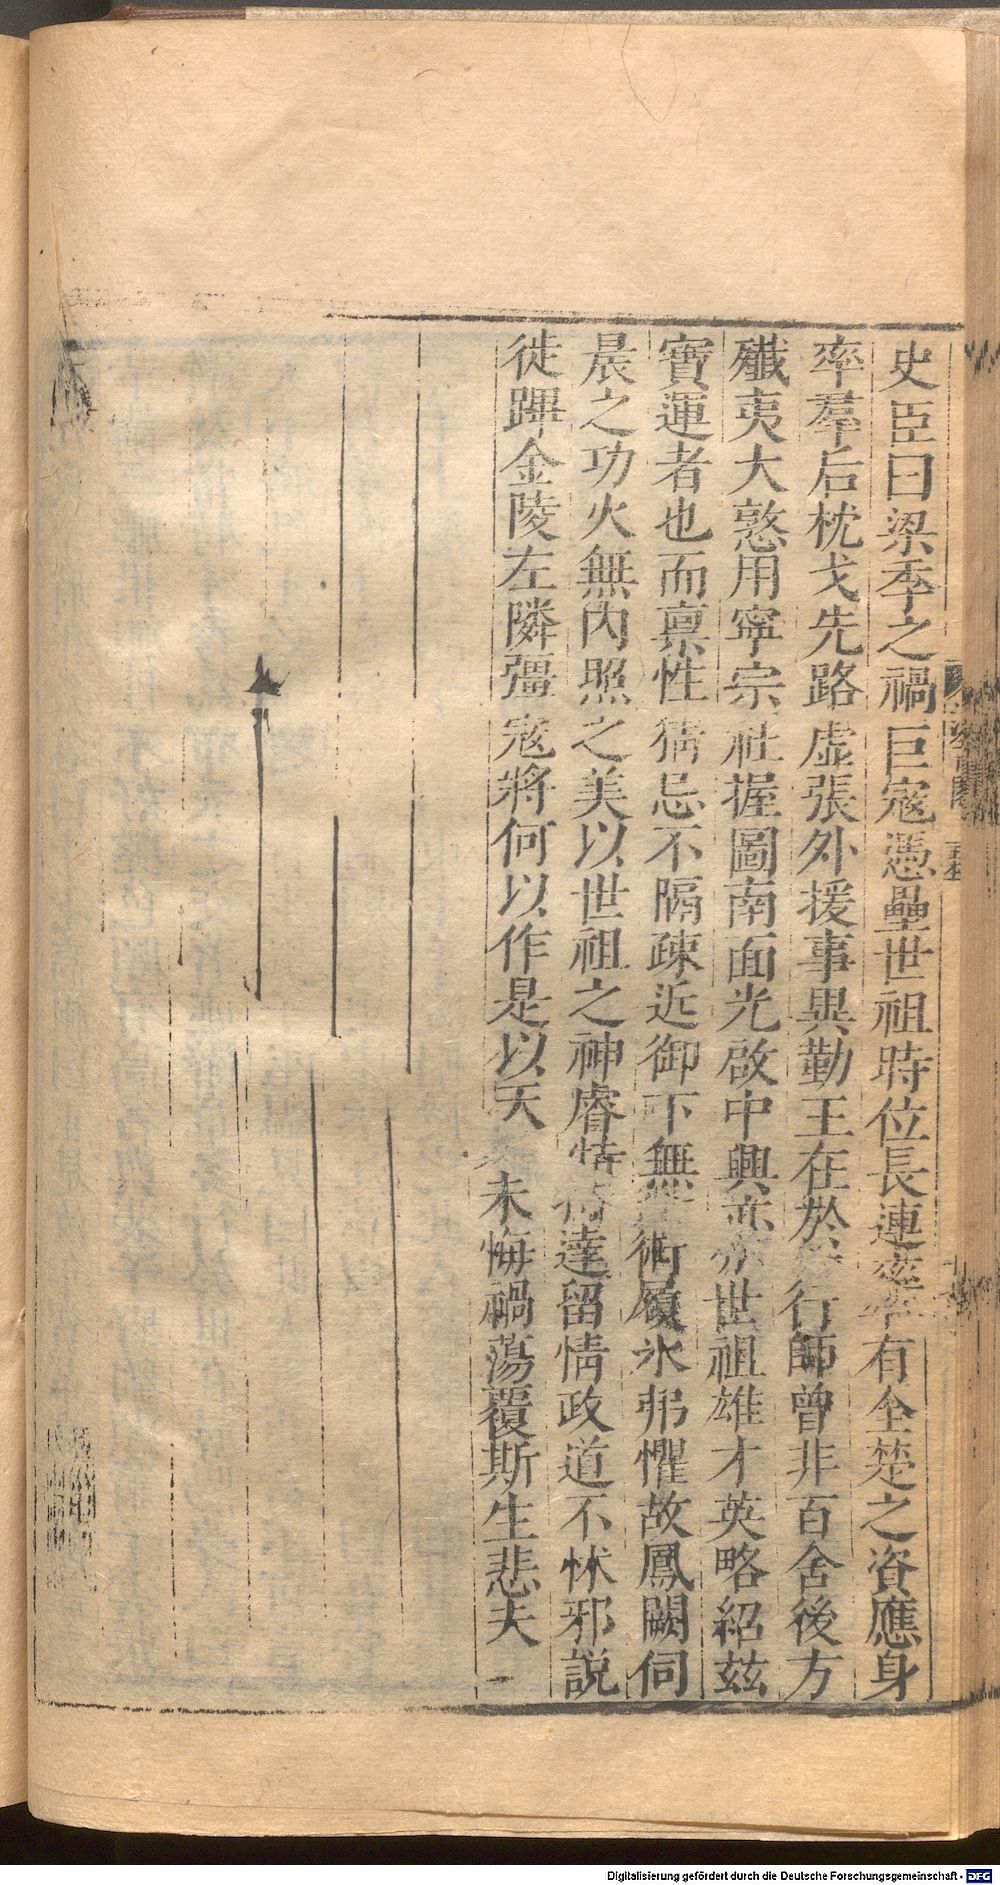 史臣曰梁季之禍巨寇憑壘世祖時位長連率有全楚之資應身
率羣后枕戈先路虚張外援事異勤王在於行師曾非百舍後方
殲夷大憝用寧宗社握圖南面光啟中興亦世祖雄才英略紹玆
寶運者也而禀性猜忌不隔疎近御下無術履氷弗懼故鳳闕伺
晨之功火無内照之美以世祖之神睿特達留情政道不怵邪説
徙蹕金陵左隣彊寇將何以作是以天未悔禍蕩覆斯生悲夫
Digitalisierung gefördert durch die Deutsche Forschungsgemeinschaft - DFG